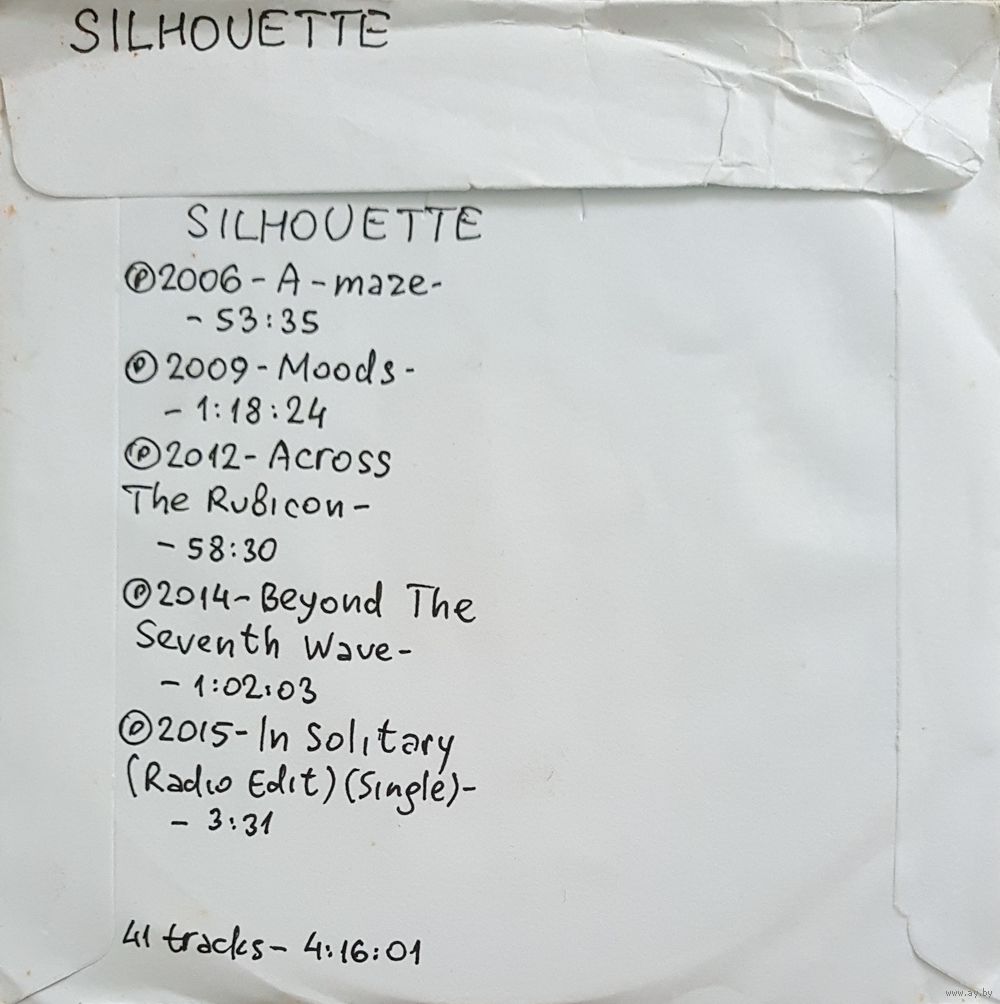 SILHOUETTE
SILHOUETTE
℗2006-A-maze-
-53:35
℗2009-Moods-
-1:18:24
℗2012-Across
The Rubicon-
-58:30
℗2014-Beyond The
Seventh Wave-
-1:02:03
℗2015-In Solitary
(Radio Edit)(Single)-
-3:31
41 tracks-4:16:01
www.ay.by